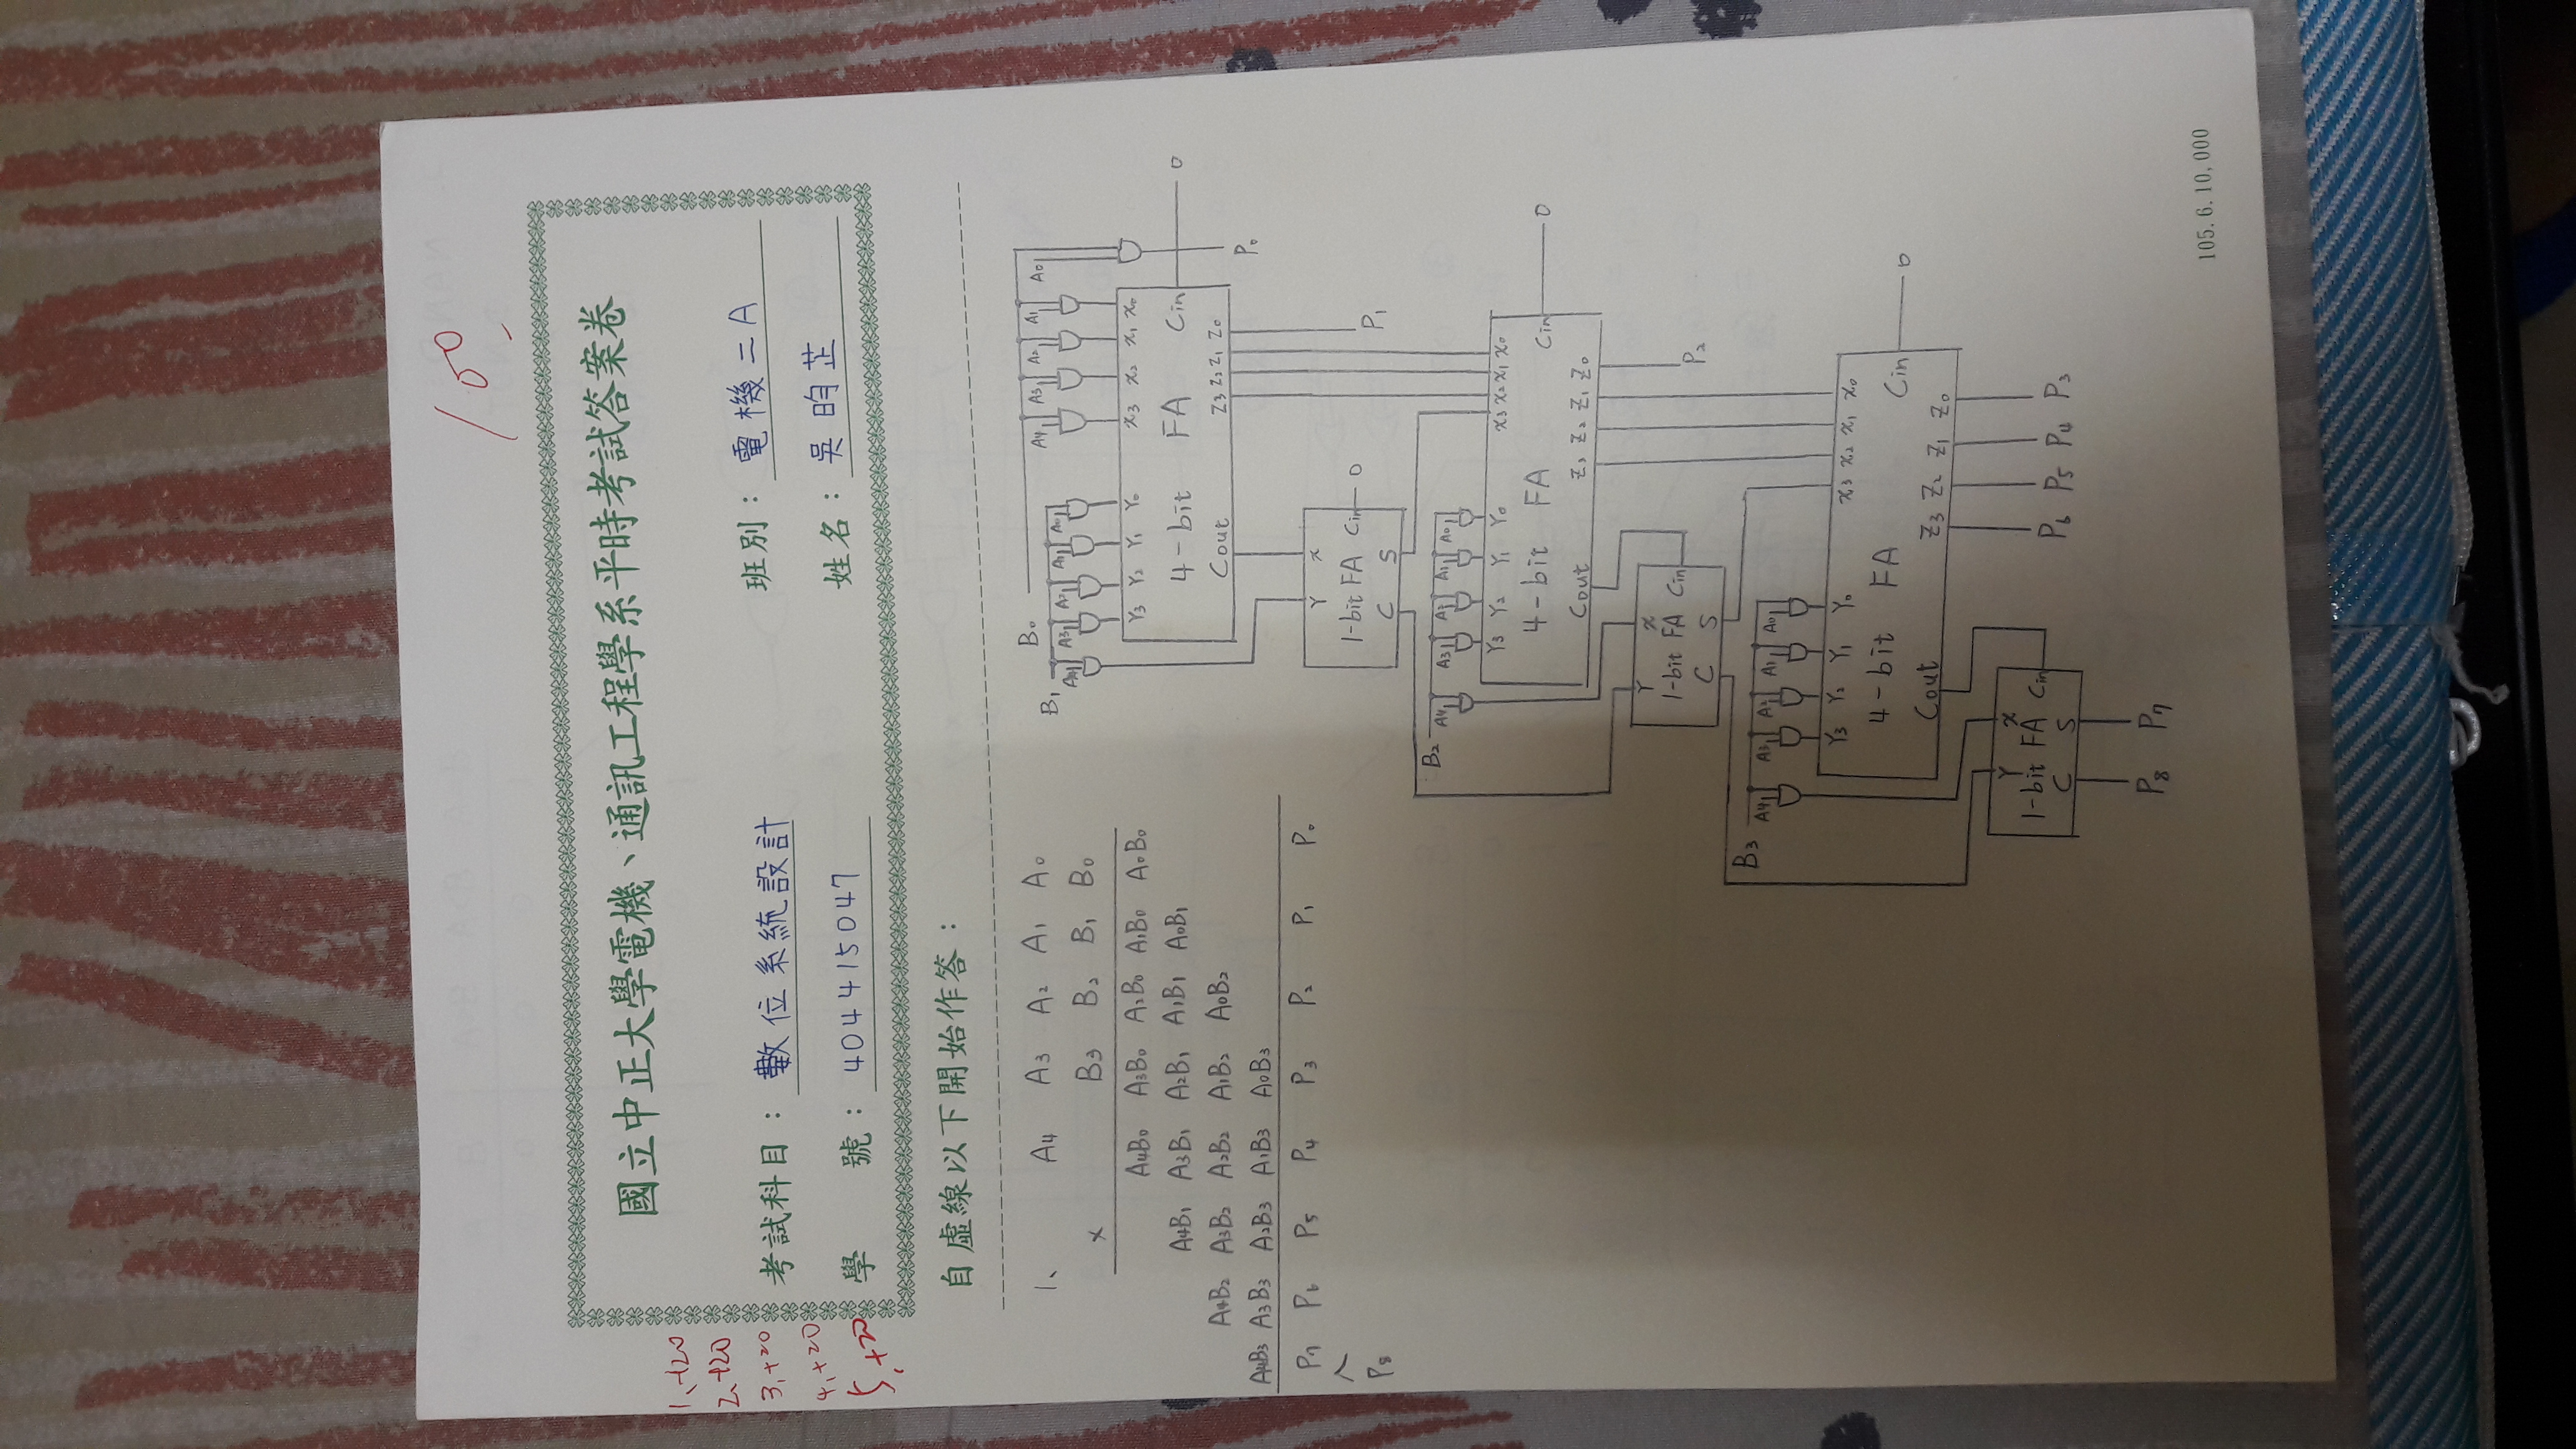 100
國立中正大學電機、通訊工程學系平時考試答案卷
1、+20
2、+20
3、+20
4、+20
5、+20
考試科目：數位系統設計
班別：電機二A
學 號：404415047
姓名：吳昀芷
自虛線以下開始作答：
1、 A4 A3 A2 A1 A0
× B3 B2 B1 B0
A4B0 A3B0 A2B0 A1B0 A0B0
A4B1 A3B1 A2B1 A1B1 A0B1
A4B2 A3B2 A2B2 A1B2 A0B2
A4B3 A3B3 A2B3 A1B3 A0B3
P7 P6 P5 P4 P3 P2 P1 P0
P8
B0
A4 A3 A2 A1 A0
B1
A4 A3 A2 A1 A0
Y3 Y2 Y1 Y0 X3 X2 X1 X0
4-bit FA Cin 0
Cout Z3 Z2 Z1 Z0
P0
Y X
1-bit FA Cin 0
C S
P1
B2 A4 A3 A2 A1 A0
Y3 Y2 Y1 Y0 X3 X2 X1 X0
4-bit FA Cin 0
Cout Z3 Z2 Z1 Z0
Y X
1-bit FA Cin
C S
P2
B3 A4 A3 A2 A1 A0
Y3 Y2 Y1 Y0 X3 X2 X1 X0
4-bit FA Cin 0
Cout Z3 Z2 Z1 Z0
Y X
1-bit FA Cin
C S
P6 P5 P4 P3
P8 P7
105.6.10,000